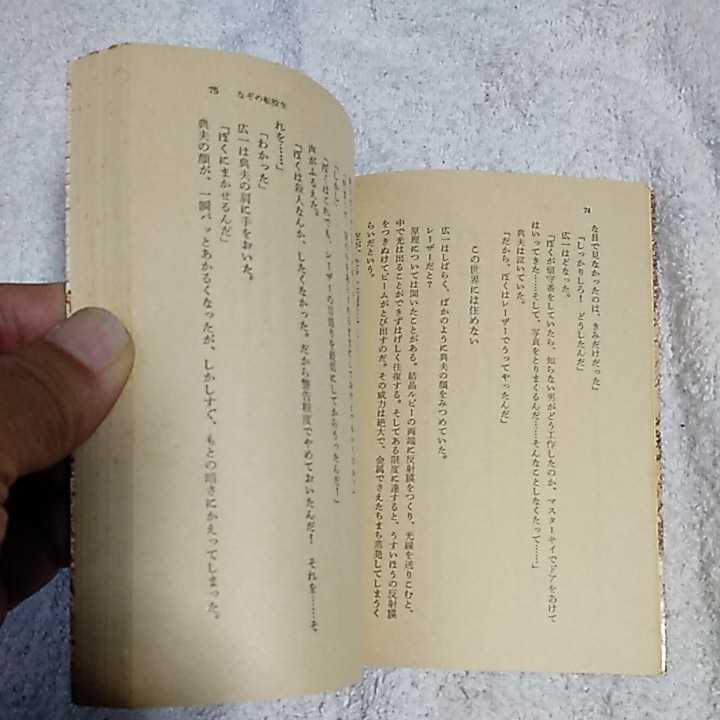 74
な目で見なかったのは、きみだけだった」
「しっかりしろ! どうしたんだ」
広一はどなった。
「ぼくが留守番をしていたら、知らない男がどう工作したのか、マスターキイでドアをあけて
はいってきた……そして、写真をとりまくるんだ……そんなことしなくたって……」
典夫は泣いていた。
「だから、ぼくはレーザーでうってやったんだ」
この世界には住めない
広一はしばらく、ばかのように典夫の顔をみつめていた。
レーザーだと?
原理については聞いたことがある。結晶ルビーの両端に反射膜をつくり、光線を送りこむと、
中で光は出ることができずはげしく往復する。そしてある限度に達すると、うすいほうの反射膜
をつきぬけてビームがとび出すのだ。その威力は絶大で、金属でさえたちまち蒸発してしまうく
らいだという。
75 なぞの転校生
「しかし
「ぼくはこれでも、レーザーの
をしてからうったんだ!」
声がふるえた。
「ぼくは殺人なんか、したくなかった。だから警告程度でやめておいたんだ! それを……そ
れを……」
「わかった」
広一は典夫の肩に手をおいた。
「ぼくにまかせるんだ」
典夫の顔が、一瞬パッとあかるくなったが、しかしすぐ、もとの暗さにかえってしまった。